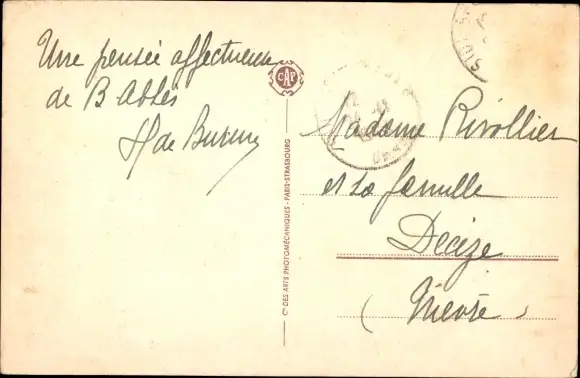 Une pensée affectueuse
de B Abbès
H de
CAP
Cie DES ARTS PHOTOMÉCANIQUES - PARIS-STRASBOURG
Madame Rivollier
et sa famille
Decize
(Nièvre)
SIDI